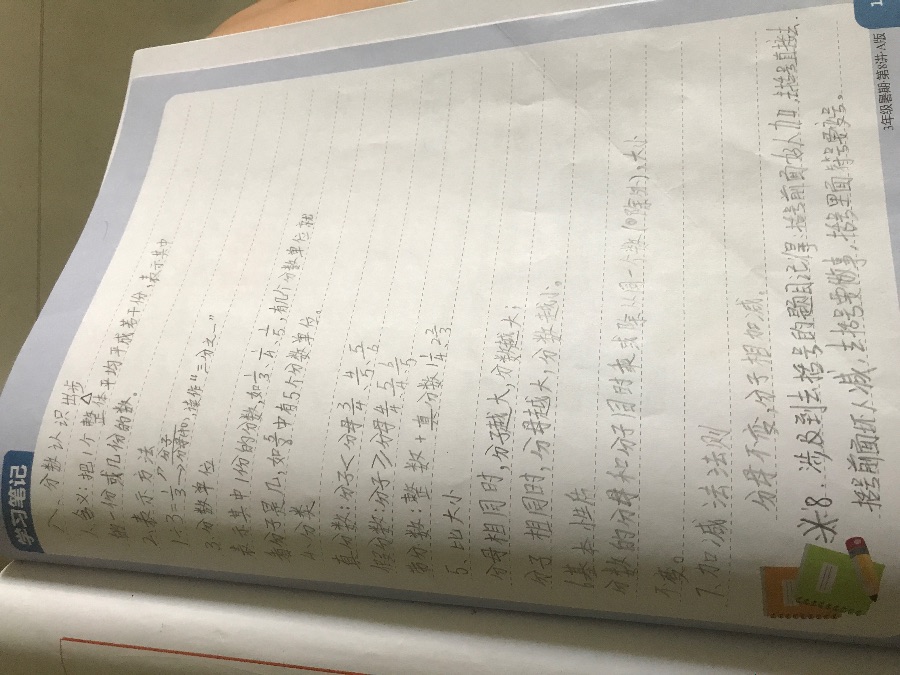 学习笔记
八、分数认识 进步
1、含义:把1个整体平均平成若干份,表示其中
1份或几份的数。
2、表示方法
1÷3=1/3→分子 →分母,读作“三分之一”
3、分数单位
表示其中1份的分数,如1/3、1/4、1/5,有几个分数单位就
看分子是几,如5/8中有5个分数单位。
4、分类
真分数:分子<分母 3/4、4/5、5/6
假分数:分子≥分母
带分数:整数+真分数 1 1/4、2 2/3
5、比大小
分母相同时,分子越大,分数越大;
分子相同时,分母越大,分数越小。
基本性质
分数的分母和分子同时乘或除以同一个数(0除外),大小
不变。
7、加减法法则
分母不变,分子相加减。
※8、涉及到去括号的题目记得,括号前面的人加,去括号直接去.
括号前面的人减,去括号要做事,括号里面符号要变号。
3年级暑期·第8讲·A版